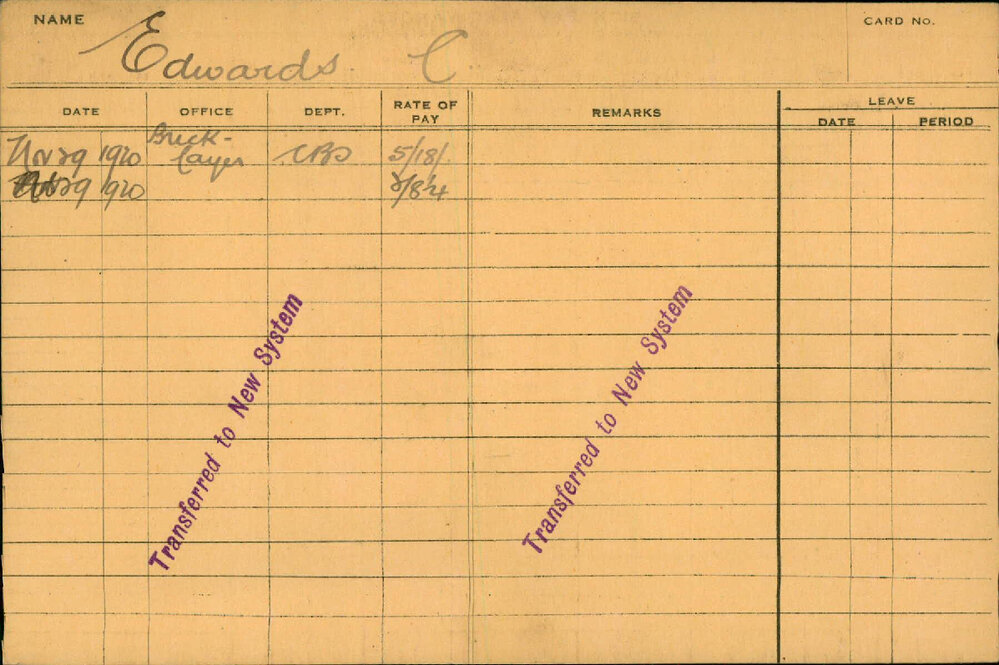 NAME CARD No.
Edwards C
LEAVE
DATE OFFICE DEPT. RATE OF PAY REMARKS DATE PERIOD
Nov 29 1920 Brick-layer 5/18/
29 1920
Transferred to New System
Transferred to New System